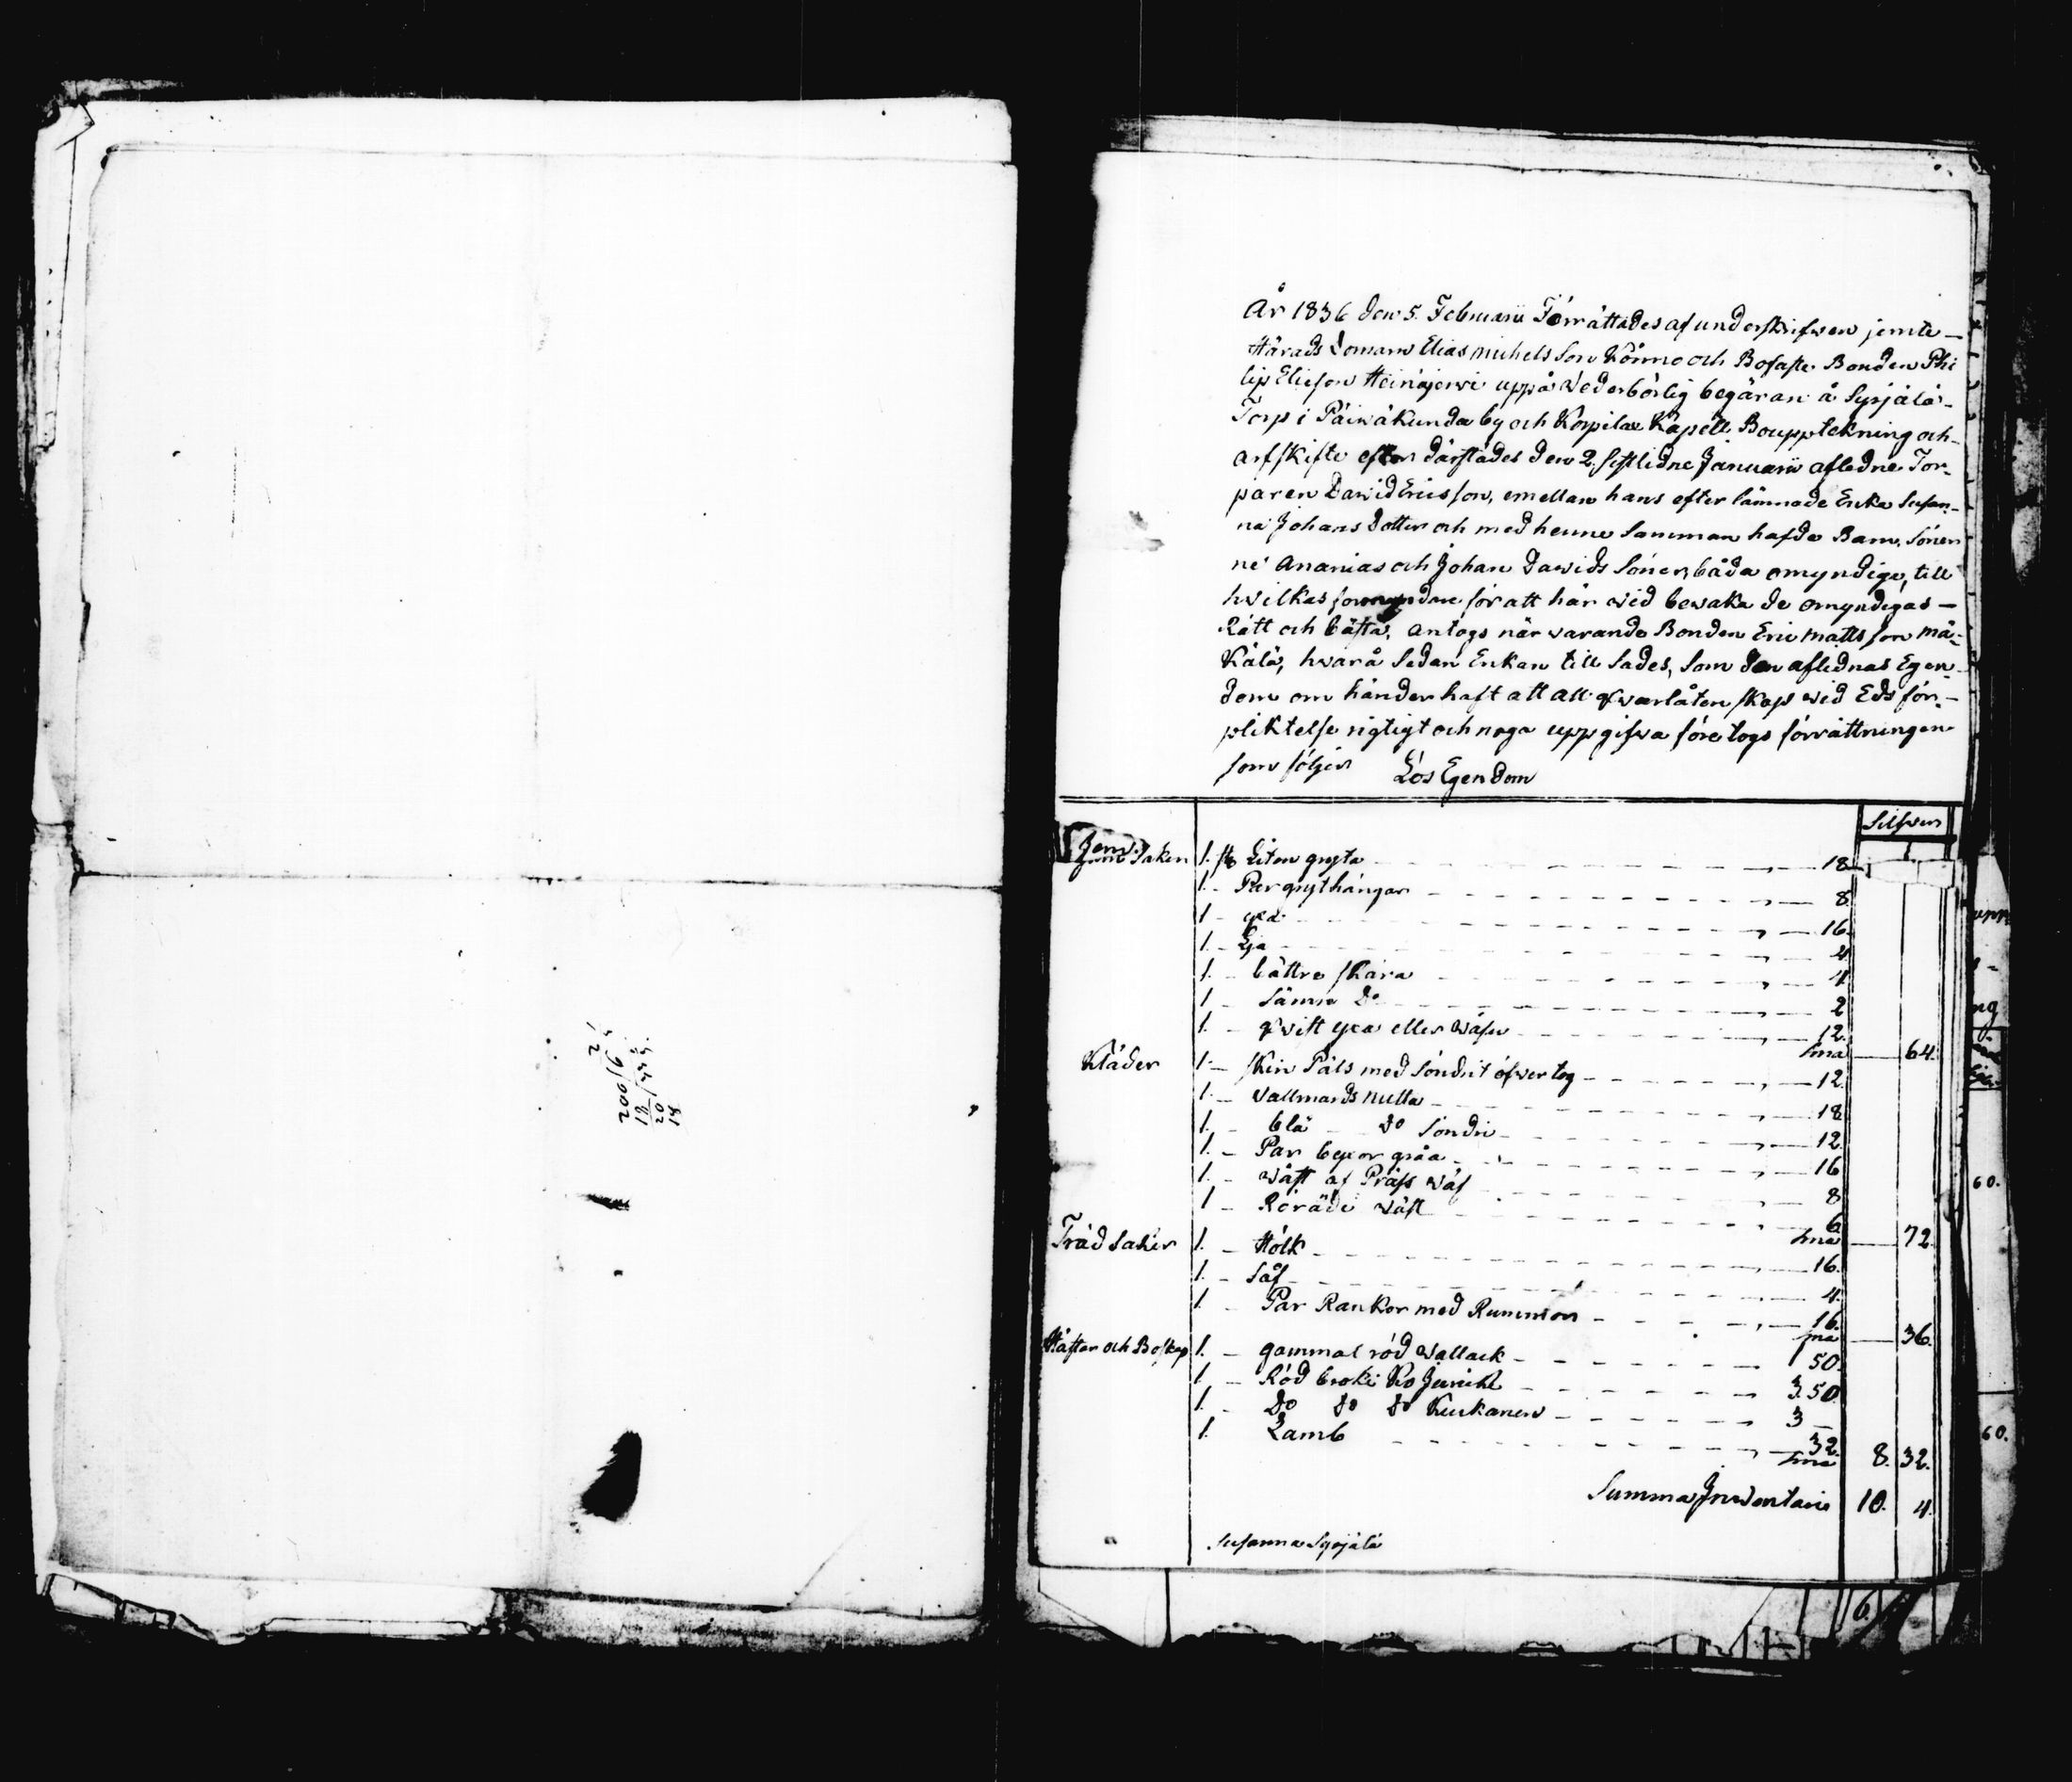 År 1836 den 5. Februarii Förrättades af underskrifwen jemte
Härads Domarn Elias Michels Son Könnö och Bofaste Bonden Phi
lip Elieson Heinäjerwi uppå wederbörlig begäran å Syrjälä
Torp i Päiwäkunda by och Korpilax Kapell Bouppteckning och
arfskifte efter därstädes den 2. sistlidne Januarii afledne Tor-
paren David Ericsson, emellan hans efter lämnade Enka Susan-
na Johans Dotter och med henne Samman hafde Barn, Söner
ne Ananias och Johan Dawids Söner, båda omyndige, till
hvilkas förmyndare för att här wid bewaka de omyndigas
Rätt och bästa, antogs när warande Bonden Eric Matts son Mä-
kälä, hwarå Sedan Enkan till Sades, Som den aflednas Egen-
dom om händer haft att all qwarlåtenskap wid Eds för-
pliktelse rigtigt och noga uppgifwa före togs förrättningen
som följer Lös Egendom
Silfwer
Jern Saker 1. st Liten gryta 18
1. - Par grythängar 8
1 - yxa 16.
1. - Lja 4
1. - bättre skära 4
1 - Sämre Do 2
1. - qwitt yxa eller 12.
Sma 64
Kläder 1 - skin Päls med Söndrit öfwertog 12.
1. - Vallmards mutta 18
1. - blå Do Söndri 12
1. - Par byxor gråa 16
1. - wäst af 8
1 - wäst 6
Sma 72
Träd Saker 1. - Hölk 16.
1. - Såf 4.
1 - Par Rankor med 16.
Sma 36.
Hästar och Boskap 1. - gammal röd Wallack 1 50.
1 - Röd broki Ko 3. 50
1. - Do Do Do 3 -
1. Lamb 32.
Sma 8. 32.
Summa Inwentari 10. 4.
Susanna Syrjälä